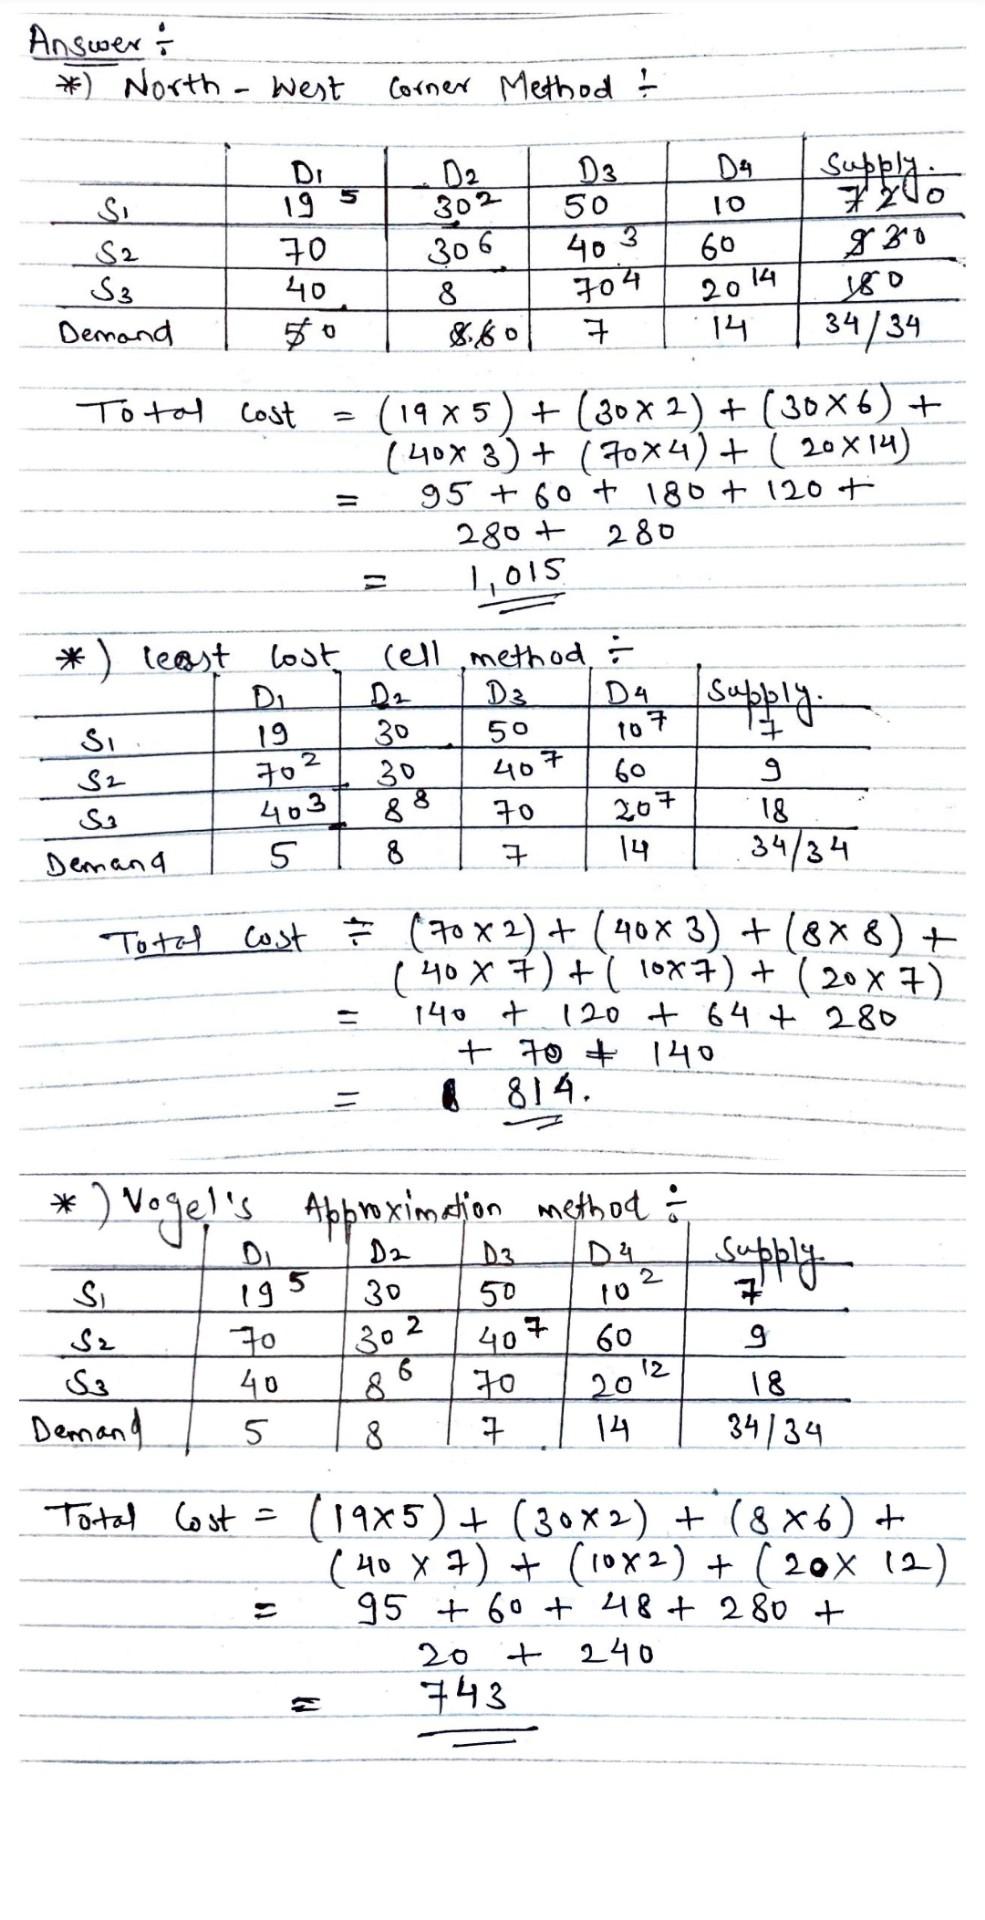 Answer ÷
*) North - West Corner Method ÷
D1 D2 D3 D4 Supply.
S1 19 5 30 2 50 10 7 2 0
S2 70 30 6 40 3 60 9 3 0
S3 40 8 70 4 20 14 18 0
Demand 5 0 8 6 0 7 14 34/34
Total cost = (19 x 5) + (30 x 2) + (30 x 6) +
(40 x 3) + (70 x 4) + (20 x 14)
= 95 + 60 + 180 + 120 +
280 + 280
= 1,015
*) least cost cell method ÷
D1 D2 D3 D4 Supply.
S1 19 30 50 10 7 7
S2 70 2 30 40 7 60 9
S3 40 3 8 8 70 20 7 18
Demand 5 8 7 14 34/34
Total cost ÷ (70 x 2) + (40 x 3) + (8 x 8) +
(40 x 7) + (10 x 7) + (20 x 7)
= 140 + 120 + 64 + 280
+ 70 + 140
= 814.
*) Vogel's Approximation method ÷
D1 D2 D3 D4 Supply
S1 19 5 30 50 10 2 7
S2 70 30 2 40 7 60 9
S3 40 8 6 70 20 12 18
Demand 5 8 7 14 34/34
Total Cost = (19 x 5) + (30 x 2) + (8 x 6) +
(40 x 7) + (10 x 2) + (20 x 12)
= 95 + 60 + 48 + 280 +
20 + 240
= 743